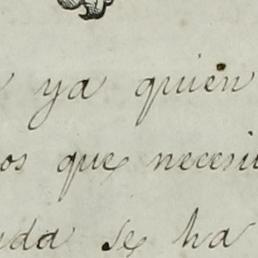 ya quien
os que necesi
da se ha